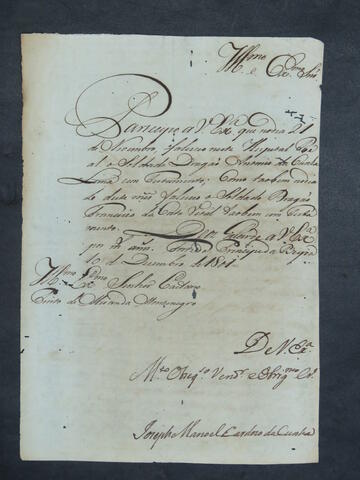 Illmo. e Exmo. Snr.
Participo a V. Exa. que no dia 1
de Dezembro faleceo neste Hospital Re
al o Soldado Dragão Antonio da Cunha
Lima com Testamento, Como tambem no dia
do dito mes faleceo o Soldado Dragão
Francisco da Costa Vidal tambem com Testa
mento. Ds. Guarde a V. Exa.
por ms. anns. Forte Principe da Beira
10 de Dezembro de 1811
Illmo. Exmo. Senhor Caetano
Pinto de Miranda Montenegro
De V. Exa.
Mto. Obrigo. Venor. e Obrigmo. Co.
Joseph Manoel Cardozo da Cunha